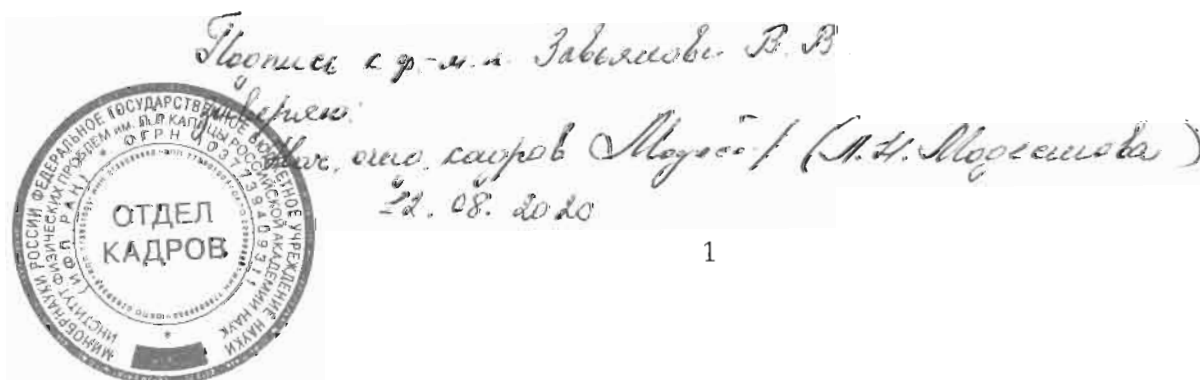 Подпись к.ф.-м.н. Завьялова В.В
заверяю:
Нач. отд. кадров (Л.Н. Модестова)
12.08.2020
1
МИНОБРНАУКИ РОССИИ ФЕДЕРАЛЬНОЕ ГОСУДАРСТВЕННОЕ БЮДЖЕТНОЕ УЧРЕЖДЕНИЕ НАУКИ
ИНСТИТУТ ФИЗИЧЕСКИХ ПРОБЛЕМ ИМ. П.Л. КАПИЦЫ РОССИЙСКОЙ АКАДЕМИИ НАУК
(ИФП РАН) * ОГРН 1037739409311
ОТДЕЛ
КАДРОВ